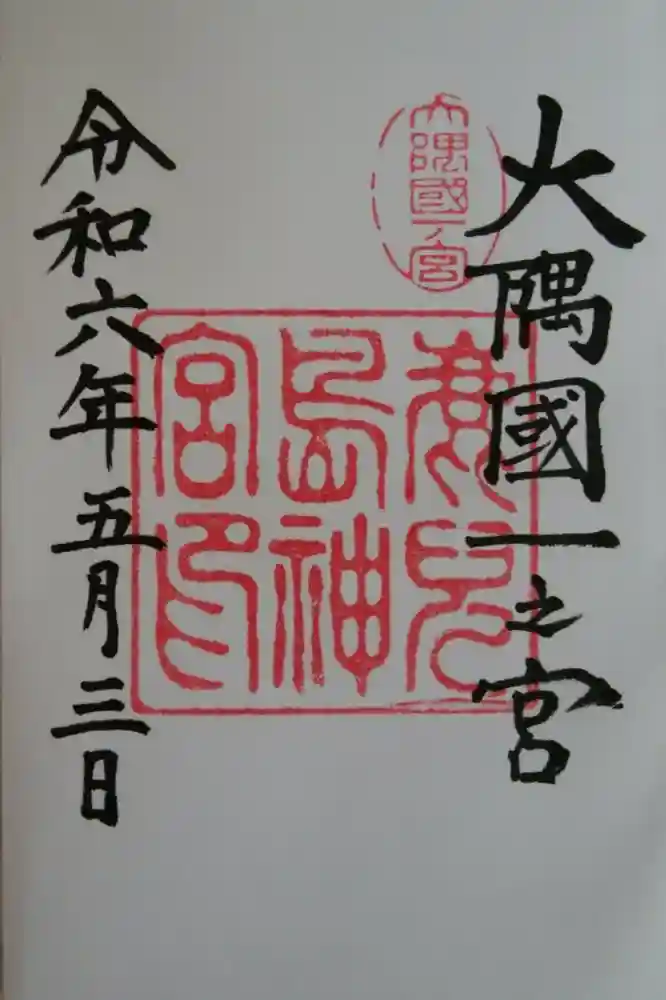 大隅國一之宮
大隅國一ノ宮
鹿兒
島神
宮印
令和六年五月三日